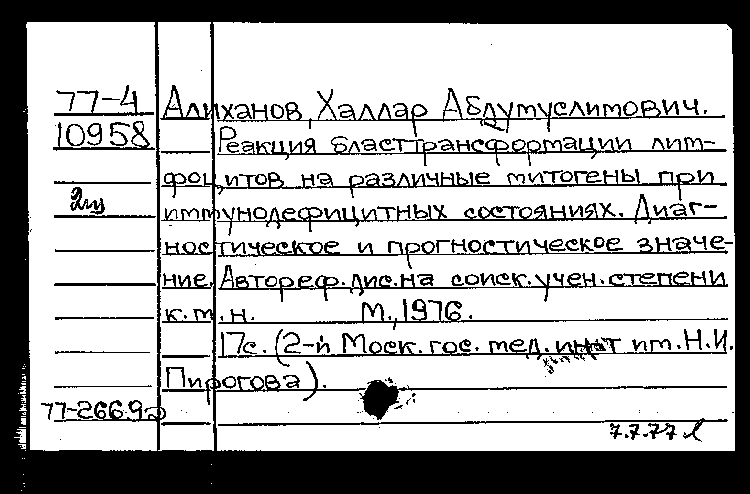 77-4 Алиханов, Халлар Абдумуслимович.
10958 Реакция бласттрансформации лим-
фоцитов на различные митогены при
иммунодефицитных состояниях. Диаг-
ностическое и прогностическое значе-
ние. Автореф. дис. на соиск. учен. степени
к.м.н. М., 1976.
17с. (2-й Моск. гос. мед. ин-т им. Н.И.
Пирогова).
77-26692
7.7.77